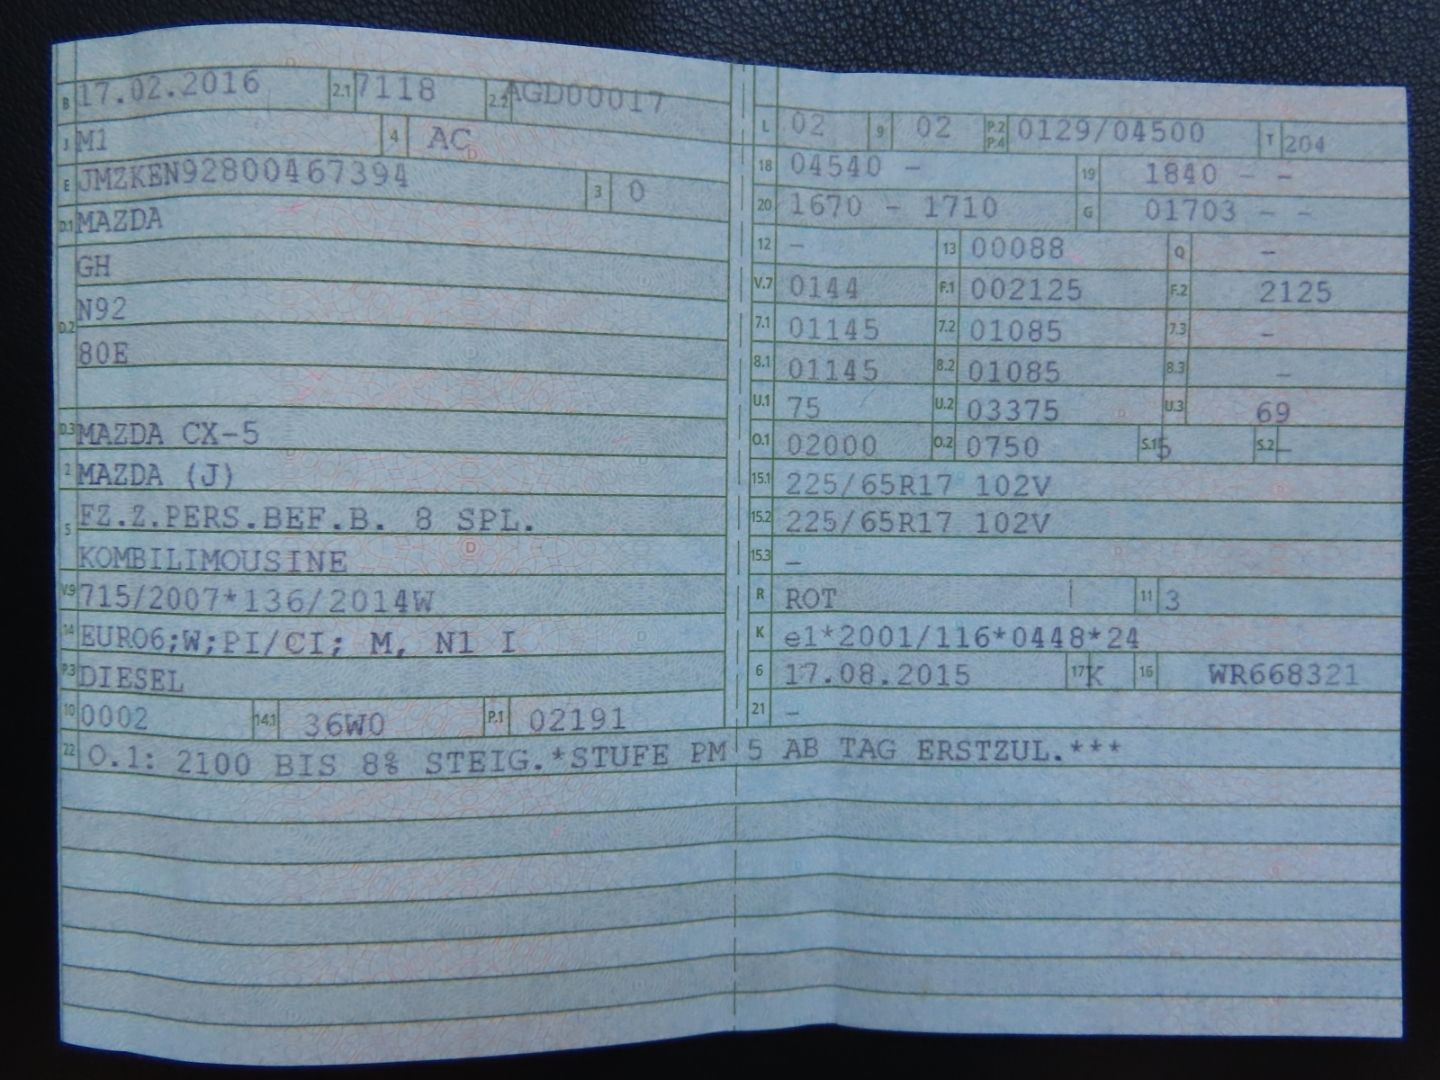 B 17.02.2016 2.1 7118 2.2 AGD00017
J M1 4 AC
E JMZKEN92800467394 3 0
D.1 MAZDA
GH
D.2 N92
80E
D.3 MAZDA CX-5
2 MAZDA (J)
5 FZ.Z.PERS.BEF.B. 8 SPL.
KOMBILIMOUSINE
V.9 715/2007*136/2014W
14 EURO6;W;PI/CI; M, N1 I
P.3 DIESEL
10 0002 14.1 36W0 P.1 02191
L 02 9 02 P.2 P.4 0129/04500 T 204
18 04540 - 19 1840 - -
20 1670 - 1710 G 01703 - -
12 - 13 00088 Q -
V.7 0144 F.1 002125 F.2 2125
7.1 01145 7.2 01085 7.3 -
8.1 01145 8.2 01085 8.3 -
U.1 75 U.2 03375 U.3 69
O.1 02000 O.2 0750 S.1 5 S.2 -
15.1 225/65R17 102V
15.2 225/65R17 102V
15.3 -
R ROT 11 3
K e1*2001/116*0448*24
6 17.08.2015 17 K 16 WR668321
21 -
22 O.1: 2100 BIS 8% STEIG.*STUFE PM 5 AB TAG ERSTZUL.***